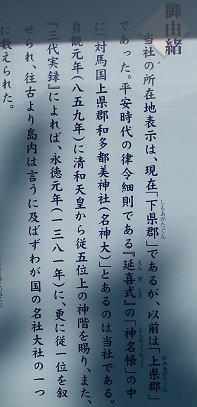 御由緒
当社の所在地表示は、現在「下県郡」であるが、以前は「上県郡」
であった。平安時代の律令細則である『延喜式』の「神名帳」の中
に「対馬国上県郡和多都美神社(名神大)」とあるのは当社である。
貞観元年(八五九年)に清和天皇から従五位上の神階を賜り、また、
『三代実録』によれば、永徳元年(一三八一年)に、更に従一位を叙
せられ、往古より島内は言うに及ばずわが国の名社大社の一つ
に数えられた。